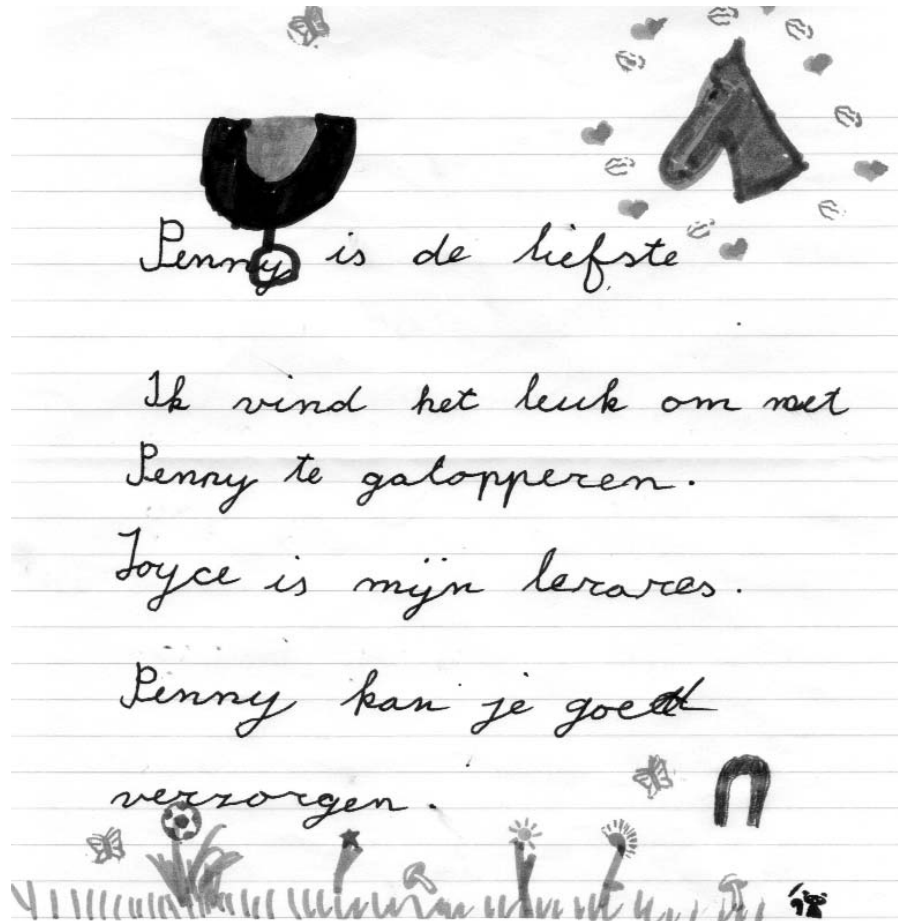 Penny is de liefste
Ik vind het leuk om met
Penny te galopperen.
Joyce is mijn lerares.
Penny kan je goed
verzorgen.